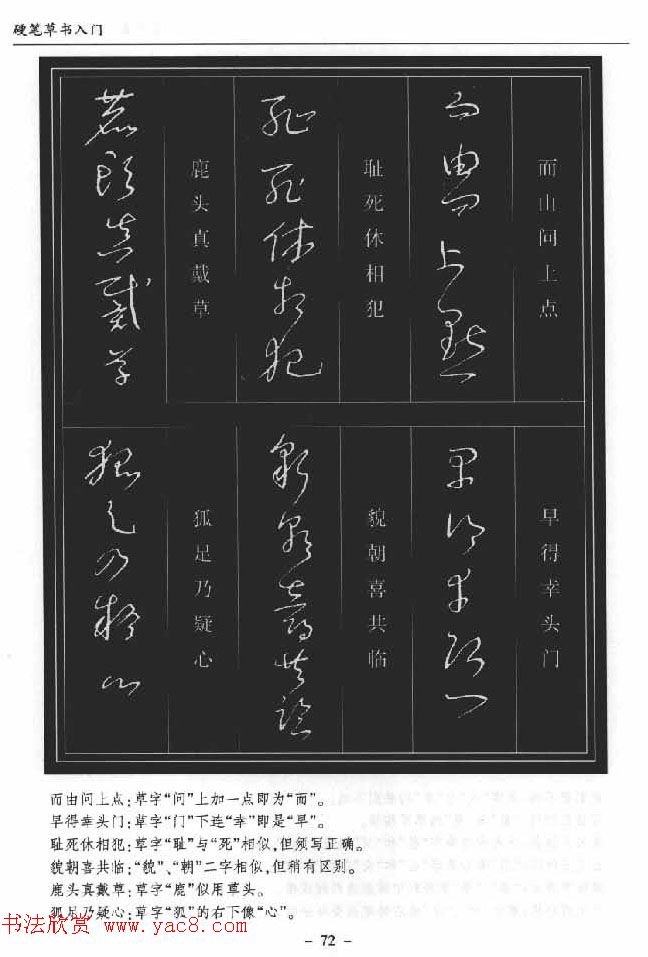 硬笔草书入门
而由问上点
而由问上点
耻死休相犯
耻死休相犯
鹿头真戴草
鹿头真戴草
早得幸头门
早得幸头门
貌朝喜共临
貌朝喜共临
狐足乃疑心
狐足乃疑心
而由问上点:草字“问”上加一点即为“而”。
早得幸头门:草字“门”下连“幸”即是“早”。
耻死休相犯:草字“耻”与“死”相似,但须写正确。
貌朝喜共临:“貌”、“朝”二字相似,但稍有区别。
鹿头真戴草:草字“鹿”似用草头。
狐足乃疑心:草字“狐”的右下像“心”。
书法欣赏 www.yac8.com
- 72 -